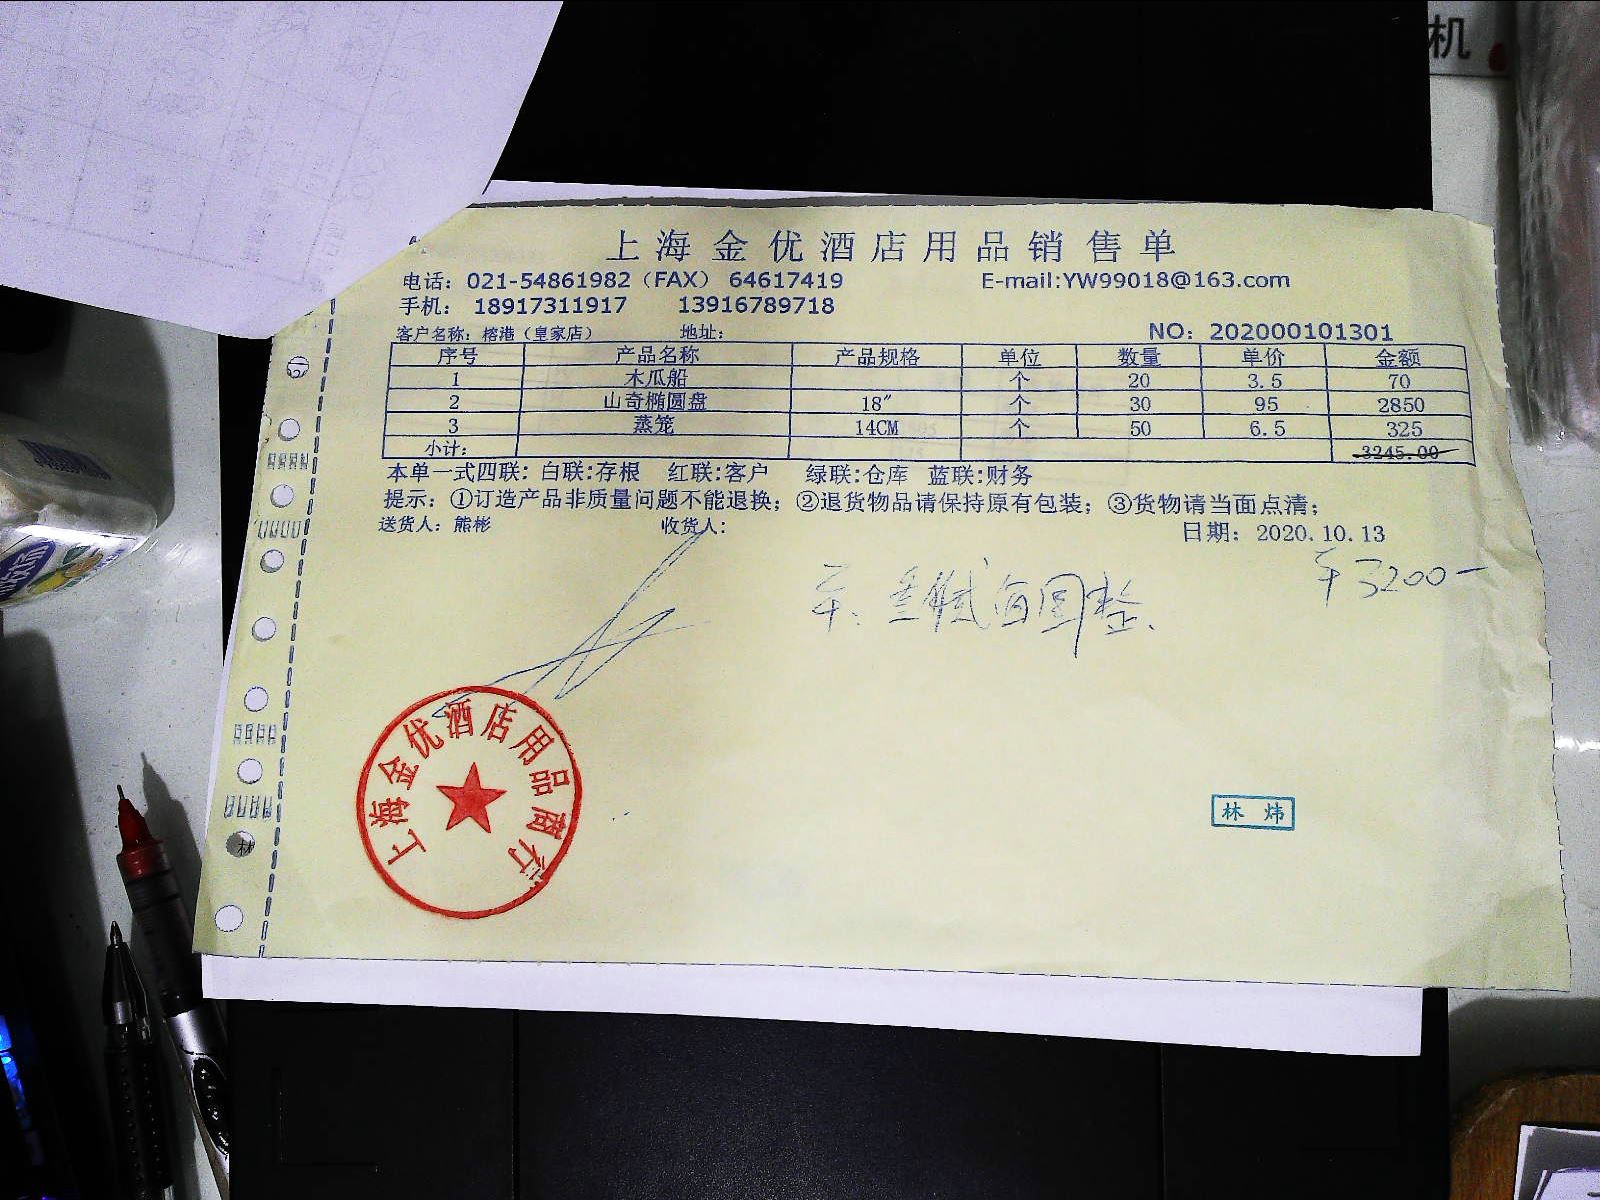 机
上海金优酒店用品销售单
电话：021-54861982（FAX） 64617419 E-mail:YW99018@163.com
手机： 18917311917 13916789718
客户名称：榕港（皇家店） 地址： NO：202000101301
序号 产品名称 产品规格 单位 数量 单价 金额
1 木瓜船 个 20 3.5 70
2 山奇椭圆盘 18″ 个 30 95 2850
3 蒸笼 14CM 个 50 6.5 325
小计： 3245.00
本单一式四联：白联:存根 红联:客户 绿联:仓库 蓝联:财务
提示：①订造产品非质量问题不能退换；②退货物品请保持原有包装；③货物请当面点清；
送货人：熊彬 收货人： 日期：2020.10.13
3200-
上海金优酒店用品商行
林炜
林